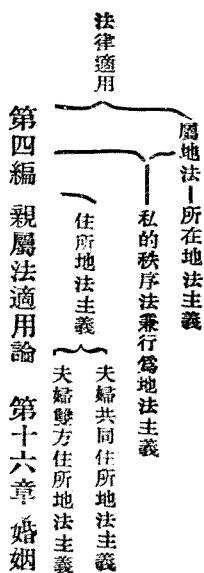 法律適用
屬地法─所在地法主義
私的秩序法兼行爲地法主義
住所地法主義
夫婦共同住所地法主義
夫婦雙方住所地法主義
第四編 親屬法適用論 第十六章 婚姻